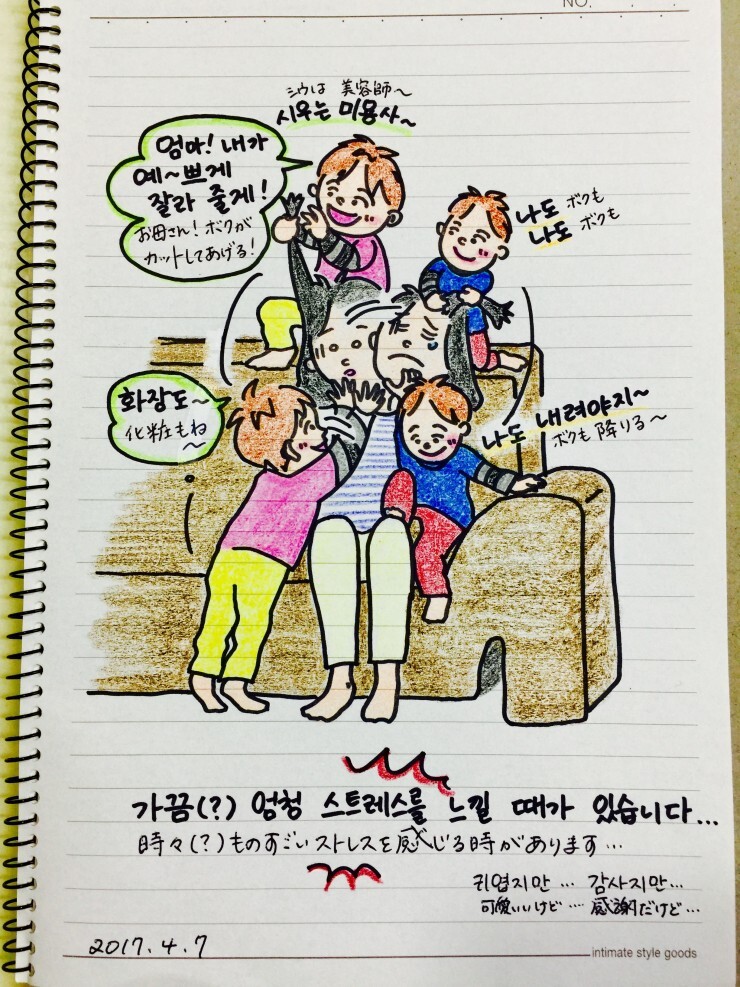 NO.
シウは 美容師〜
시우는 미용사~
엄마! 내가
예~쁘게
잘라 줄게!
お母さん! ボクが
カットしてあげる!
나도 ボクも
나도 ボクも
화장도~
化粧もね〜
나도 내려야지~
ボクも 降りる〜
가끔(?) 엄청 스트레스를 느낄 때가 있습니다...
時々(?)ものすごいストレスを感じる時があります...
귀엽지만... 감사지만...
可愛いいけど... 感謝だけど...
2017.4.7
intimate style goods